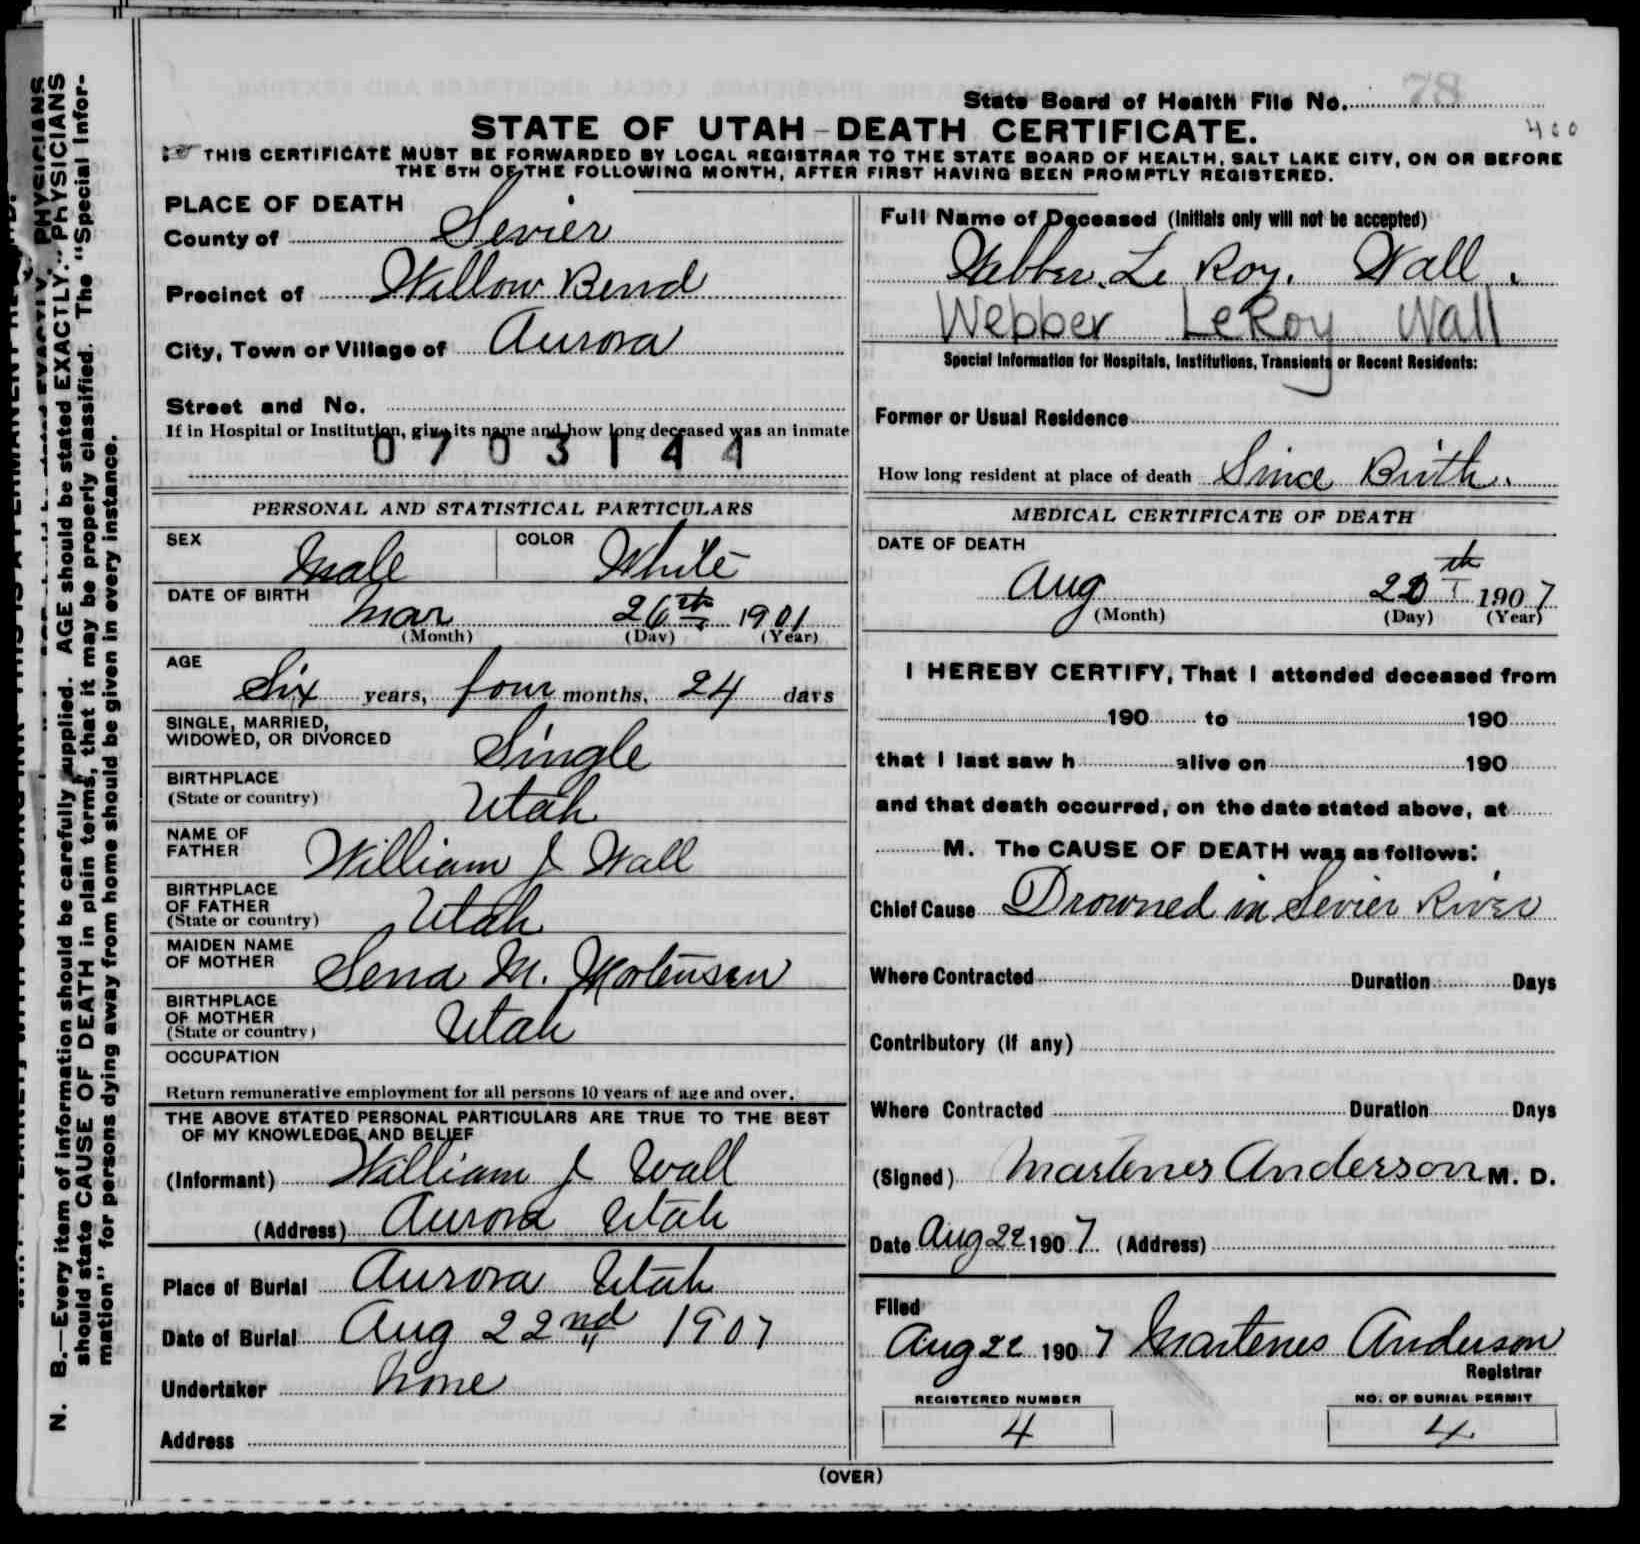 State Board of Health File No. 78
400
STATE OF UTAH-DEATH CERTIFICATE.
THIS CERTIFICATE MUST BE FORWARDED BY LOCAL REGISTRAR TO THE STATE BOARD OF HEALTH, SALT LAKE CITY, ON OR BEFORE
THE 5TH OF THE FOLLOWING MONTH, AFTER FIRST HAVING BEEN PROMPTLY REGISTERED.
PLACE OF DEATH
County of Sevier
Precinct of Willow Bend
City, Town or Village of Aurora
Street and No.
If in Hospital or Institution, give its name and how long deceased was an inmate
0703144
PERSONAL AND STATISTICAL PARTICULARS
SEX Male COLOR White
DATE OF BIRTH Mar 26th 1901
(Month) (Day) (Year)
AGE Six years, four months, 24 days
SINGLE, MARRIED,
WIDOWED, OR DIVORCED Single
BIRTHPLACE
(State or country) Utah
NAME OF
FATHER William J Wall
BIRTHPLACE
OF FATHER
(State or country) Utah
MAIDEN NAME
OF MOTHER Sena M. Mortensen
BIRTHPLACE
OF MOTHER
(State or country) Utah
OCCUPATION
Return remunerative employment for all persons 10 years of age and over.
THE ABOVE STATED PERSONAL PARTICULARS ARE TRUE TO THE BEST
OF MY KNOWLEDGE AND BELIEF
(Informant) William J Wall
(Address) Aurora Utah
Place of Burial Aurora Utah
Date of Burial Aug 22nd 1907
Undertaker None
Address
Full Name of Deceased (Initials only will not be accepted)
Webber. Le Roy. Wall.
Webber LeRoy Wall
Special Information for Hospitals, Institutions, Transients or Recent Residents:
Former or Usual Residence
How long resident at place of death Since Birth.
MEDICAL CERTIFICATE OF DEATH
DATE OF DEATH
Aug 20th 1907
(Month) (Day) (Year)
I HEREBY CERTIFY, That I attended deceased from
190 to 190
that I last saw h alive on 190
and that death occurred, on the date stated above, at
M. The CAUSE OF DEATH was as follows:
Chief Cause Drowned in Sevier River
Where Contracted Duration Days
Contributory (If any)
Where Contracted Duration Days
(Signed) Martenes Anderson M. D.
Date Aug 22 1907 (Address)
Filed
Aug 22 1907 Martenes Anderson
Registrar
REGISTERED NUMBER
4
NO. OF BURIAL PERMIT
4
(OVER)
N. B.—Every item of information should be carefully supplied. AGE should be stated EXACTLY. PHYSICIANS
should state CAUSE OF DEATH in plain terms, that it may be properly classified. The "Special Infor-
mation" for persons dying away from home should be given in every instance.